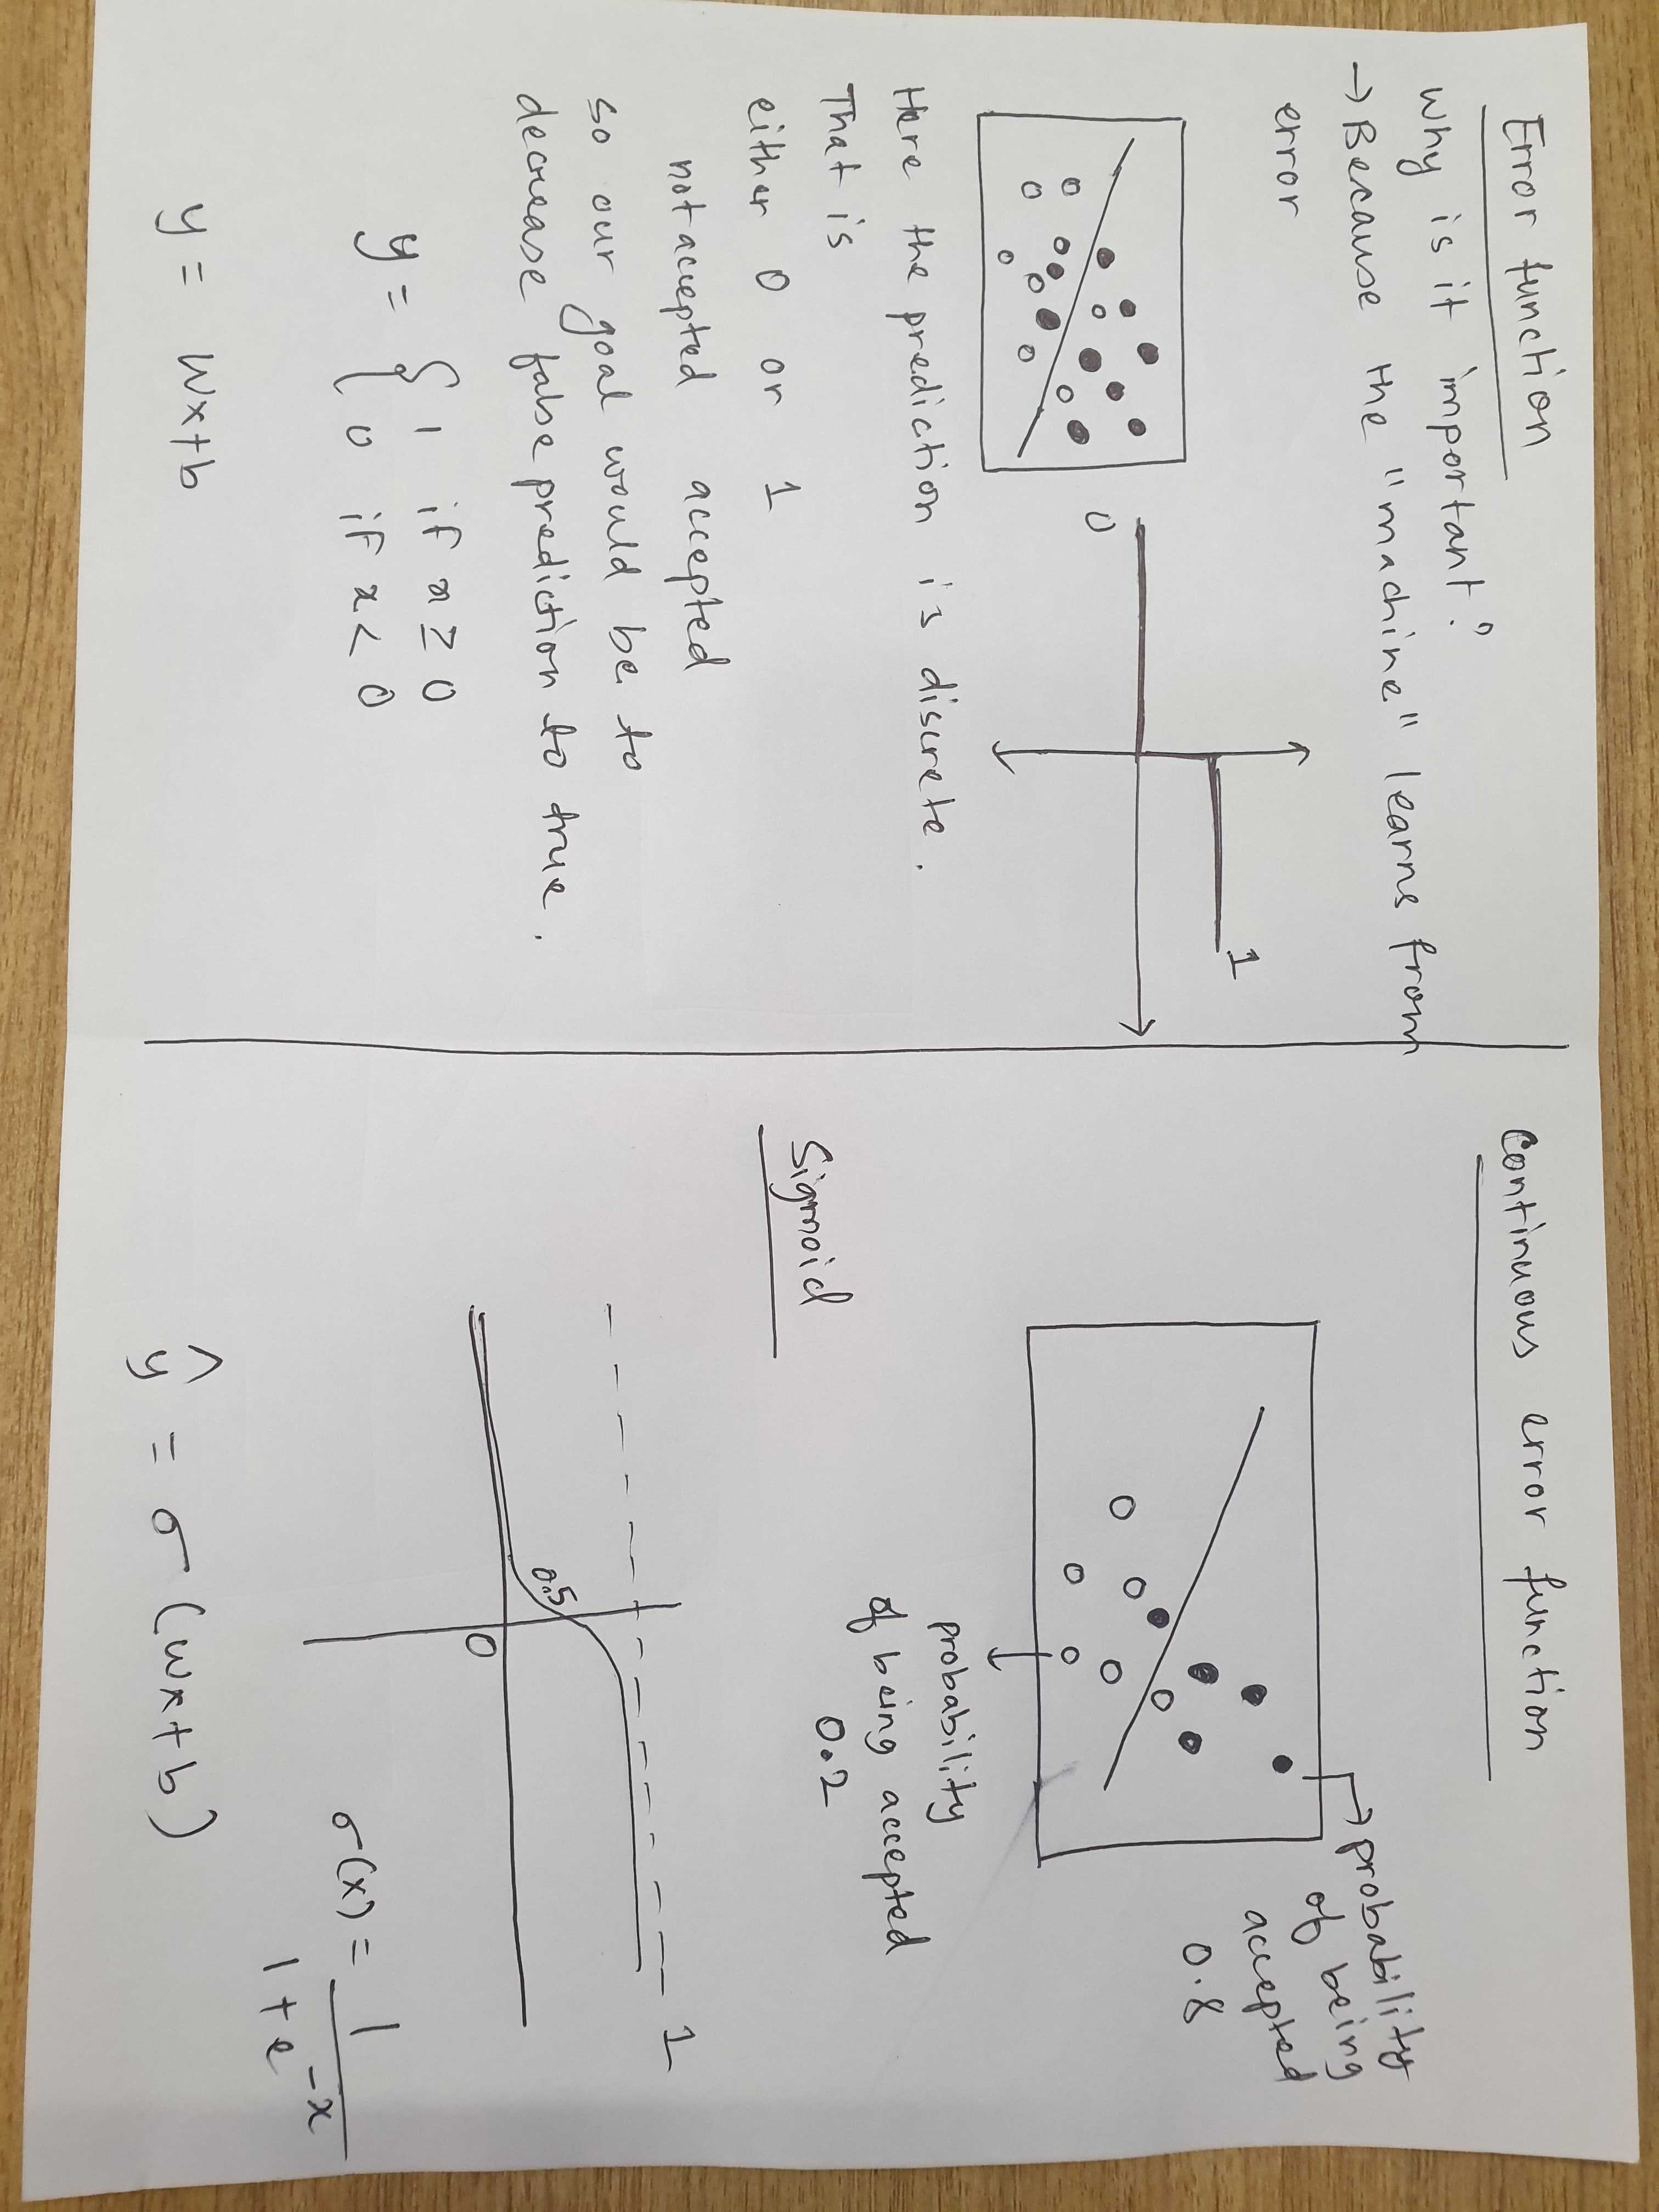 Error function
Why is it important?
→ Because the "machine" learns from
error
1
0
Here the prediction is discrete.
That is
either 0 or 1
not accepted accepted
so our goal would be to
decrease false prediction to true.
y = { 1 if x ≥ 0
0 if x < 0
y = Wx+b
Continuous error function
→ probability
of being
accepted
0.8
probability
of being accepted
0.2
Sigmoid
1
0.5
0
σ(x) = 1
1 + e^-x
ŷ = σ (Wx+b)